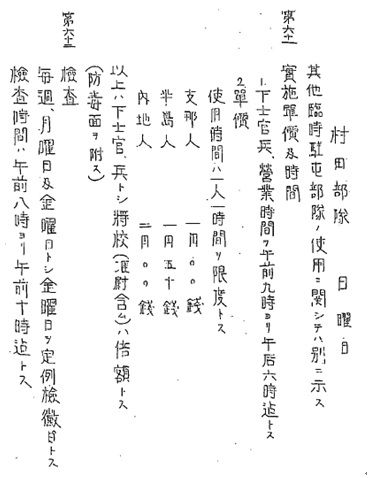 村田部隊 日曜日
其他臨時駐屯部隊ノ使用ニ関シテハ別ニ示ス
第六十一 實施單價及時間
1.下士官兵、營業時間ヲ午前九時ヨリ午后六時迠トス
2.單價
使用時間ハ一人一時間ヲ限度トス
支那人 一円〇〇錢
半島人 一円五十錢
内地人 二円〇〇錢
以上ハ下士官、兵トシ將校(准尉含ム)ハ倍額トス
(防毒面ヲ附ス)
第六十二 檢査
毎週、月曜日及金曜日トシ金曜日ヲ定例檢黴日トス
檢査時間ハ午前八時ヨリ午前十時迠トス